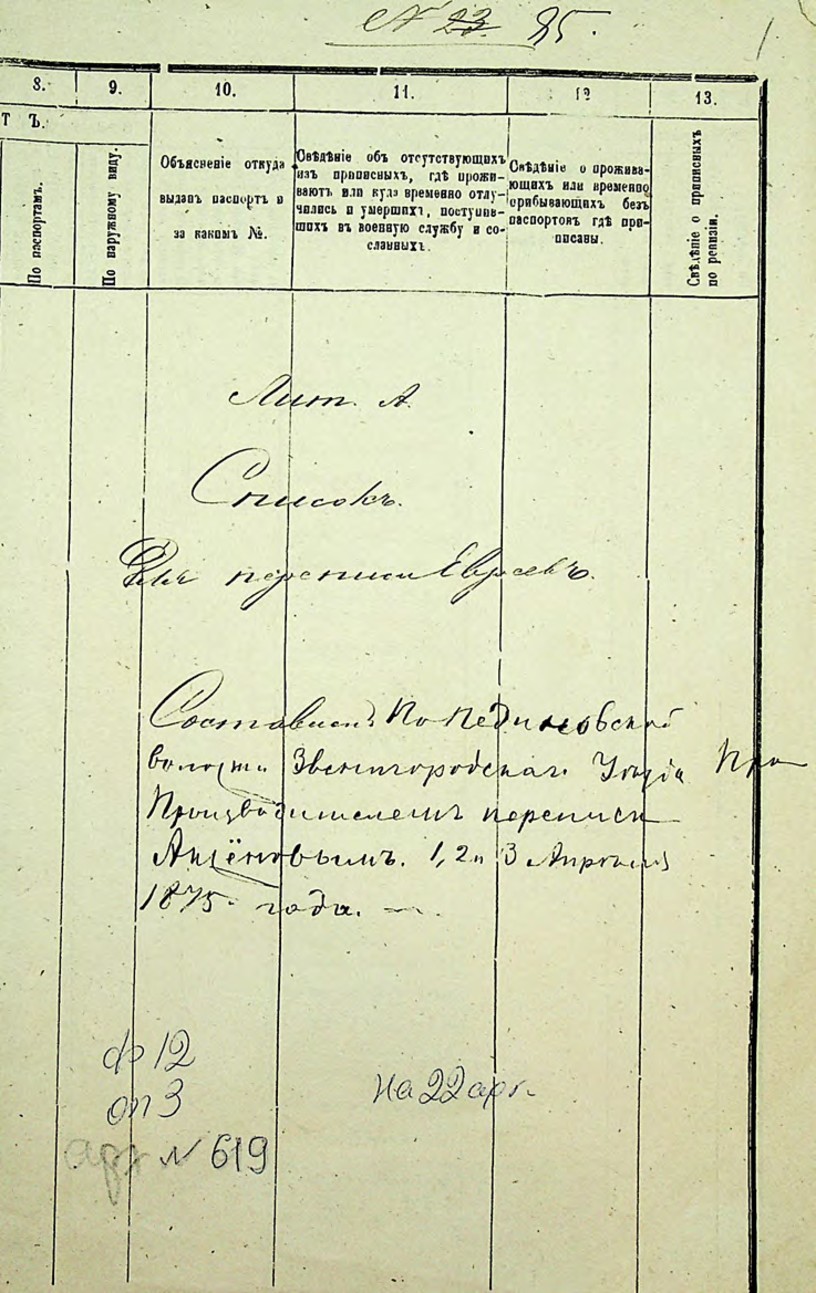 N 23. 25.
1
8.
9.
10.
11.
12
13.
Т Ъ.
По паспортамъ.
По наружному виду.
Объясненіе откуда
выданъ паспортъ и
за какимъ №.
Свѣдѣніе объ отсутствующихъ
изъ приписныхъ, гдѣ прожи-
ваютъ или куда временно отлу-
чились и умершихъ, поступив-
шихъ въ военную службу и со-
сланныхъ.
Свѣдѣніе о прожива-
ющихъ или временно
прибывающихъ безъ
паспортовъ гдѣ при-
писаны.
Свѣдѣніе о приписныхъ
по ревизіи.
Лит. А.
Списокъ.
Для переписи Евреевъ.
Составленъ По Пединовской
волости Звенигородскаг. Уѣзда
Производителемъ переписи
Аксёновымъ. 1, 2 и 3 Апрѣля
1875. года.
ф 12
оп 3
арх N 619
На 22 арк.